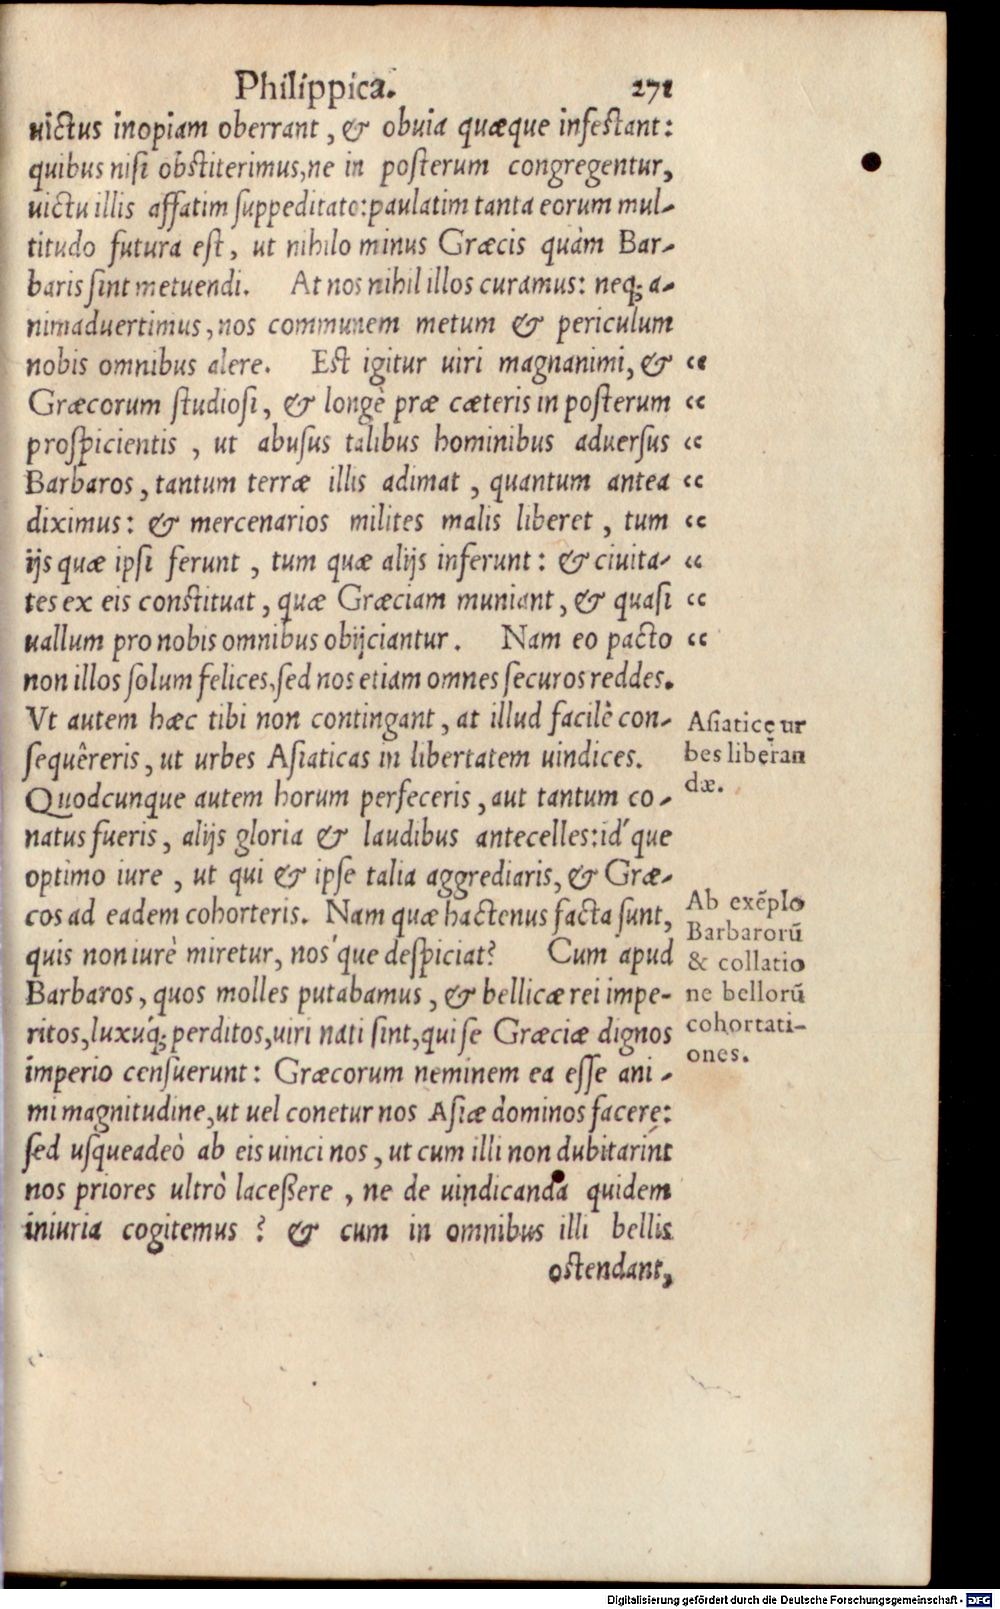 Philippica. 271
uictus inopiam oberrant, & obuia quæque infestant:
quibus nisi obstiterimus, ne in posterum congregentur,
uictu illis affatim suppeditato: paulatim tanta eorum mul-
titudo futura est, ut nihilo minus Græcis quàm Bar-
baris sint metuendi. At nos nihil illos curamus: neq; a-
nimaduertimus, nos communem metum & periculum
nobis omnibus alere. Est igitur uiri magnanimi, & “
Græcorum studiosi, & longè præ cæteris in posterum “
prospicientis, ut abusus talibus hominibus aduersus “
Barbaros, tantum terræ illis adimat, quantum antea “
diximus: & mercenarios milites malis liberet, tum “
ijs quæ ipsi ferunt, tum quæ alijs inferunt: & ciuita- “
tes ex eis constituat, quæ Græciam muniant, & quasi “
uallum pro nobis omnibus obijciantur. Nam eo pacto “
non illos solum felices, sed nos etiam omnes securos reddes.
Vt autem hæc tibi non contingant, at illud facilè con-
sequêreris, ut urbes Asiaticas in libertatem uindices.
Quodcunque autem horum perfeceris, aut tantum co-
natus fueris, alijs gloria & laudibus antecelles: id'que
optimo iure, ut qui & ipse talia aggrediaris, & Græ-
cos ad eadem cohorteris. Nam quæ hactenus facta sunt,
quis non iurè miretur, nos'que despiciat? Cum apud
Barbaros, quos molles putabamus, & bellicæ rei impe-
ritos, luxuq́; perditos, uiri nati sint, qui se Græciæ dignos
imperio censuerunt: Græcorum neminem ea esse ani-
mi magnitudine, ut uel conetur nos Asiæ dominos facere:
sed usqueadeò ab eis uinci nos, ut cum illi non dubitarint
nos priores ultrò lacessere, ne de uindicanda quidem
iniuria cogitemus? & cum in omnibus illi bellis
ostendant,
Asiaticę ur
bes liberan
dæ.
Ab exẽplo
Barbarorũ
& collatio
ne bellorũ
cohortati-
ones.
Digitalisierung gefördert durch die Deutsche Forschungsgemeinschaft - DFG